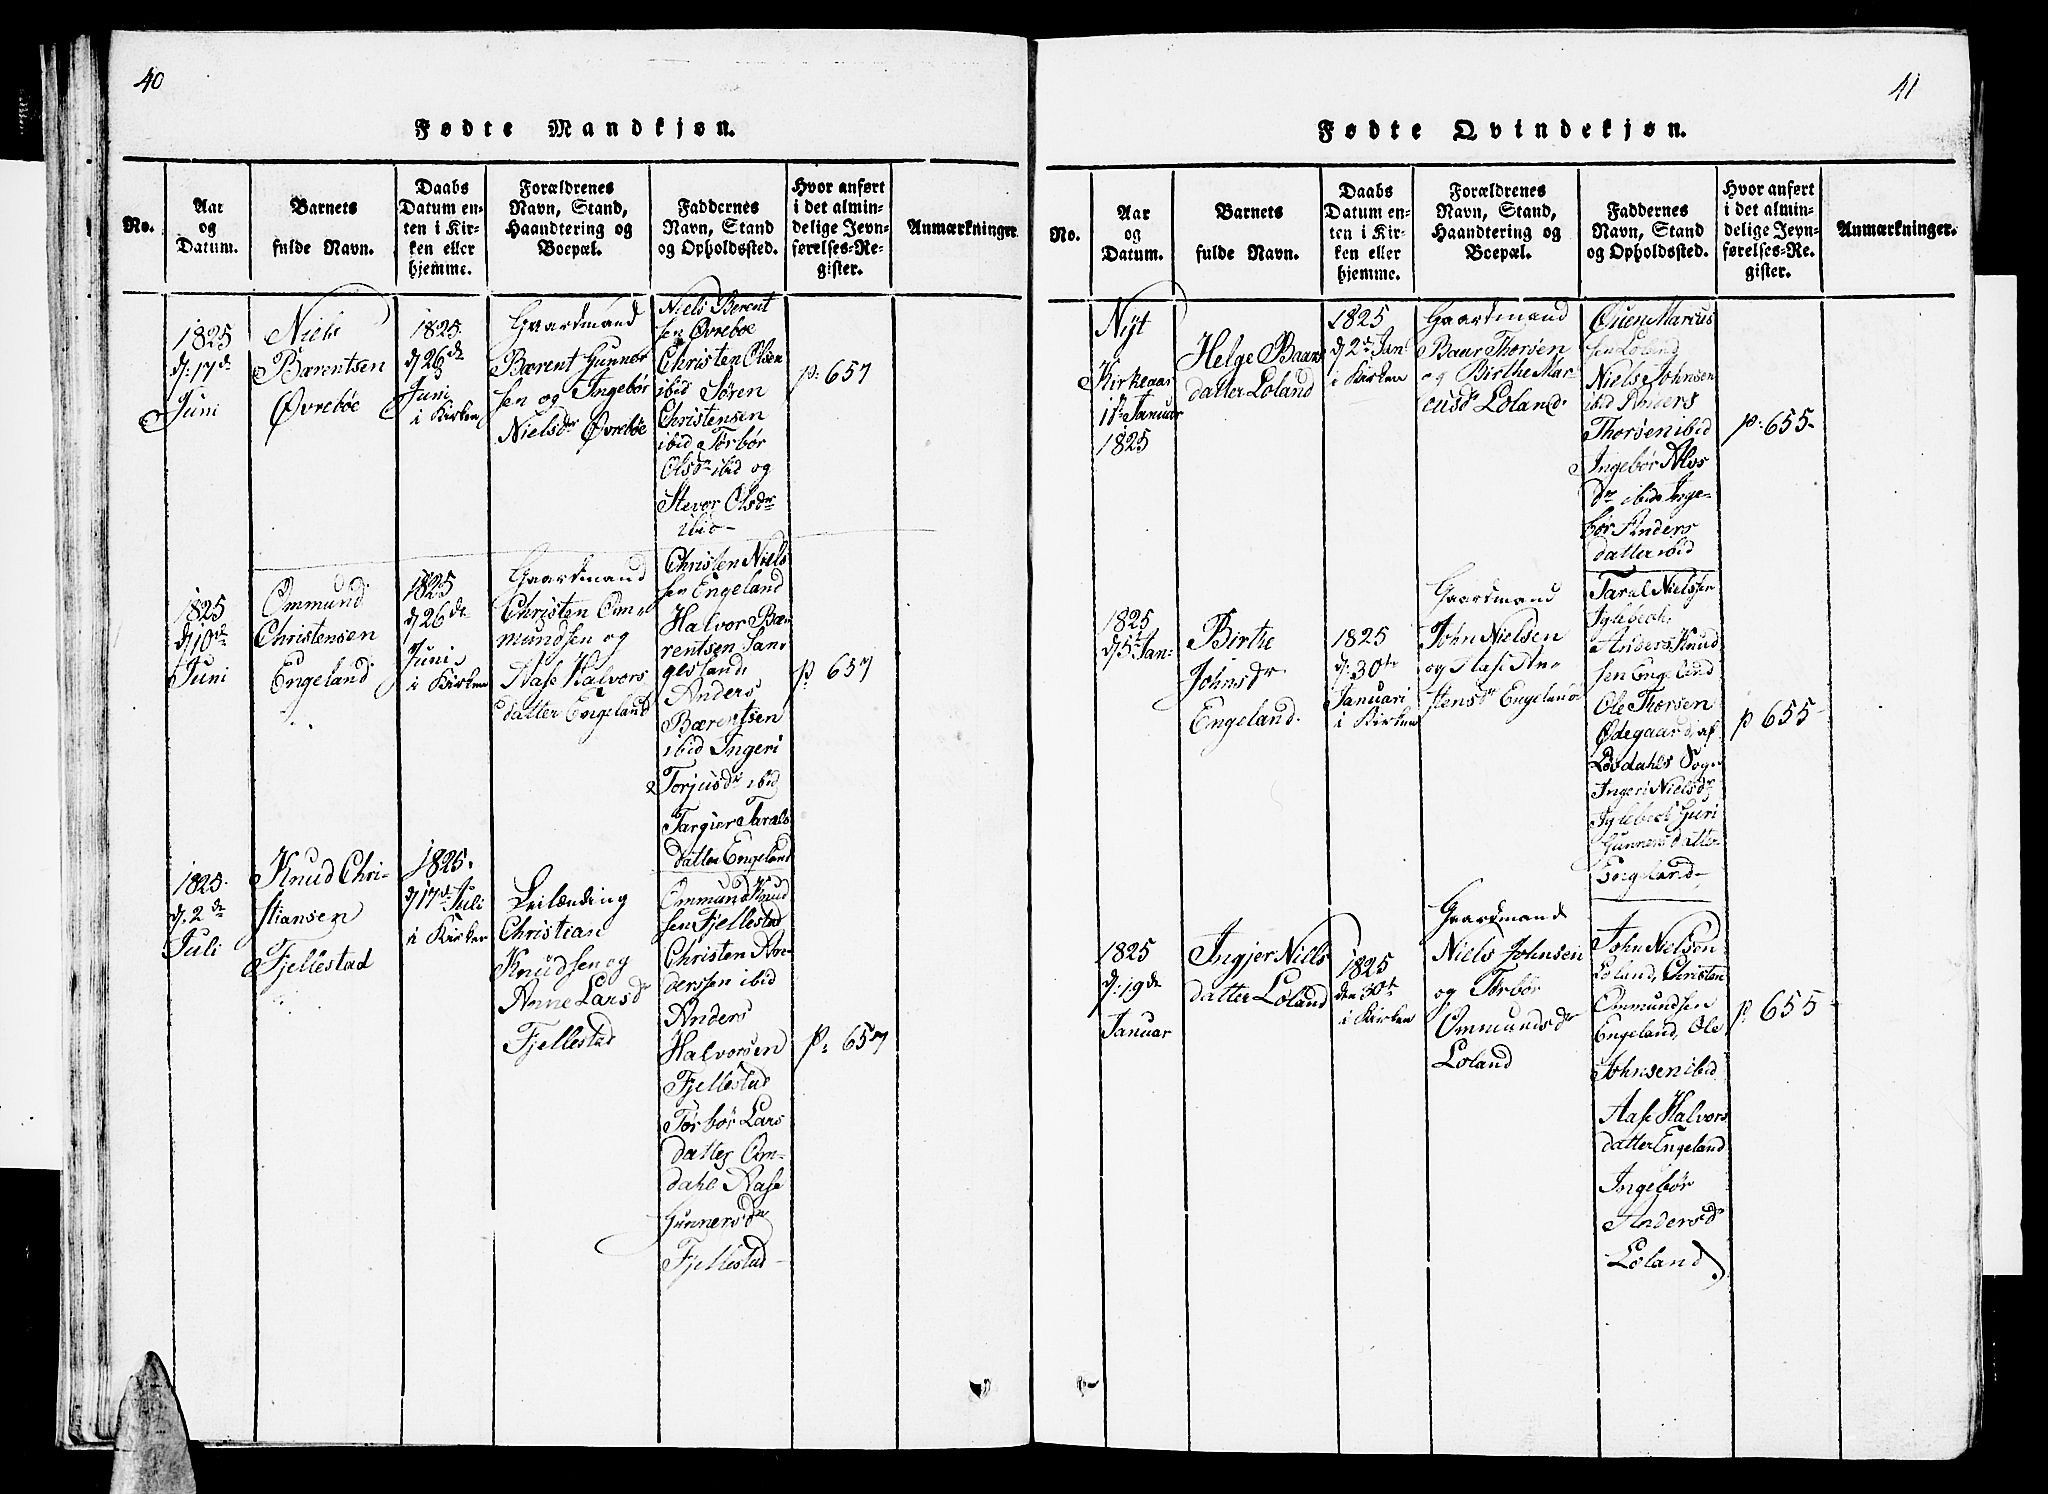 40
Fødte Mandkjøn.
No.
Aar
og
Datum.
Barnets
fulde Navn.
Daabs
Datum en-
ten i Kir-
ken eller
hjemme.
Forældrenes
Navn, Stand,
Haandtering og
Boepæl.
Faddernes
Navn, Stand
og Opholdssted.
Hvor anført
i det almin-
delige Jevn-
førelses-Re-
gister.
Anmærkninger
1825
d: 17de
Juni
Niels
Bærentsen
Øvrebøe
1825
d 26de
Juni
i Kirken
Gaardmand
Bærent Gunner
sen og Ingebør
Nielsdr Øvrebøe
Niels Berent
sen Øvreboe
Christen Olsen
ibid Søren
Christensen
ibid Torbør
Olsdr ibid og
Stevor Olsdr
ibid
p: 657
1825
d 10de
Juni
Ommund
Christensen
Engeland
1825
d 26de
Juni
i Kirken
Gaardmand
Christen Om-
mundsen og
Aase Halvors
datter Engeland
Christen Niels
sen Engeland
Halvor Bæ-
rentsen San-
gesland
Anders
Bærentsen
ibid Ingeri
Torjusdr ibid
Targier Tarals
datter Engeland
p: 657
1825
d. 2de
Juli
Knud Chri-
stiansen
Fjellestad
1825
d 17de Juli
i Kirken
Leilænding
Christian
Knudsen og
Anne Larsdr
Fjellestad
Ommund Knud
sen Fjellestad
Christen An-
derssen ibid
Anders
Halvorsen
Fjellestad
Torbør Lars
datter Om-
dahl Aase
Gunnersdr
Fjellestad
p: 657
41
Fødte Qvindekjøn.
No.
Aar
og
Datum.
Barnets
fulde Navn.
Daabs
Datum en-
ten i Kir-
ken eller
hjemme.
Forældrenes
Navn, Stand,
Haandtering og
Boepæl.
Faddernes
Navn, Stand
og Opholdssted.
Hvor anført
i det almin-
delige Jevn-
førelses-Re-
gister.
Anmærkninger.
Nyt
Kirkeaar
1ste Januar
1825
Helge Baars
datter Loland
1825
d 2de Jan
i Kirken
Gaardmand
Baar Thorsen
og Birthe Mar-
cusdr Loland
Ouen Marcus
sen Loland
Niels Johnsen
ibid Anders
Thorsen ibid
Ingebør Alvs
dr ibid Inge-
bør Anders
datter ibid
p: 655
1825
d 5t Jan
Birthe
Johnsdr
Engeland
1825
d. 30te
Januari
i Kirken
Gaardmand
John Nielsen
og Aase
stensdr Engeland
Taral Nielssen
Anders Knud
sen Engeland
Ole Thorsen
Ødegaard, af
Løvdahls Sogn
Ingeri Nielsdr
Guri
Gunnersdatter
Engeland
p 655
1825
d: 19de
Januar
Ingjer Niels
datter Loland
1825
den 30te
i Kirken
Gaardmand
Niels Johnsen
og Torbør
Ommundsdr
Loland
John Nielsen
Loland, Christen
Ommundsen
Engeland, Ole
Johnsen ibid
Aase Halvors
datter Engeland
Ingebør
Andersdr
Loland
p. 655